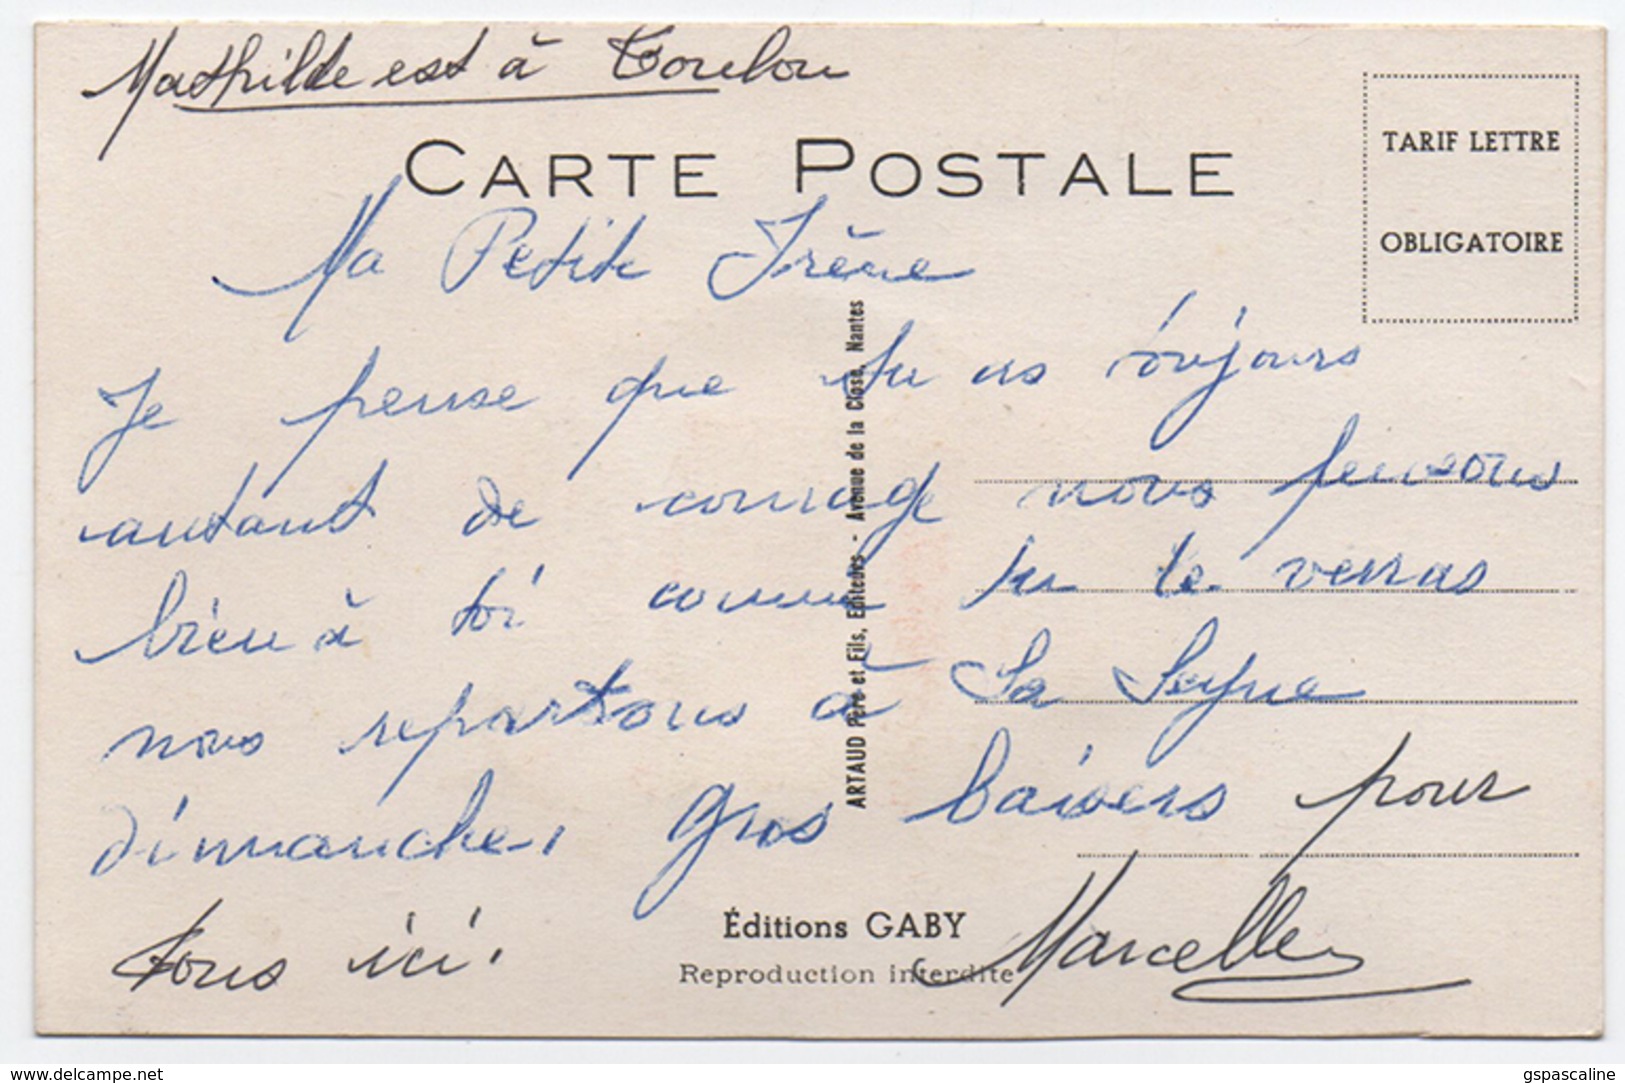 Mathilde est à Toulon
CARTE POSTALE
TARIF LETTRE
OBLIGATOIRE
Ma Petite Irène
Je pense que tu as toujours
autant de courage nous pensons
bien à toi comme tu le verras
nous repartons à La Seyne
dimanche. gros baisers pour
tous ici.
Marcelle
ARTAUD Père et Fils, Editeurs - Avenue de la Close, Nantes
Éditions GABY
Reproduction interdite
www.delcampe.net
gspascaline